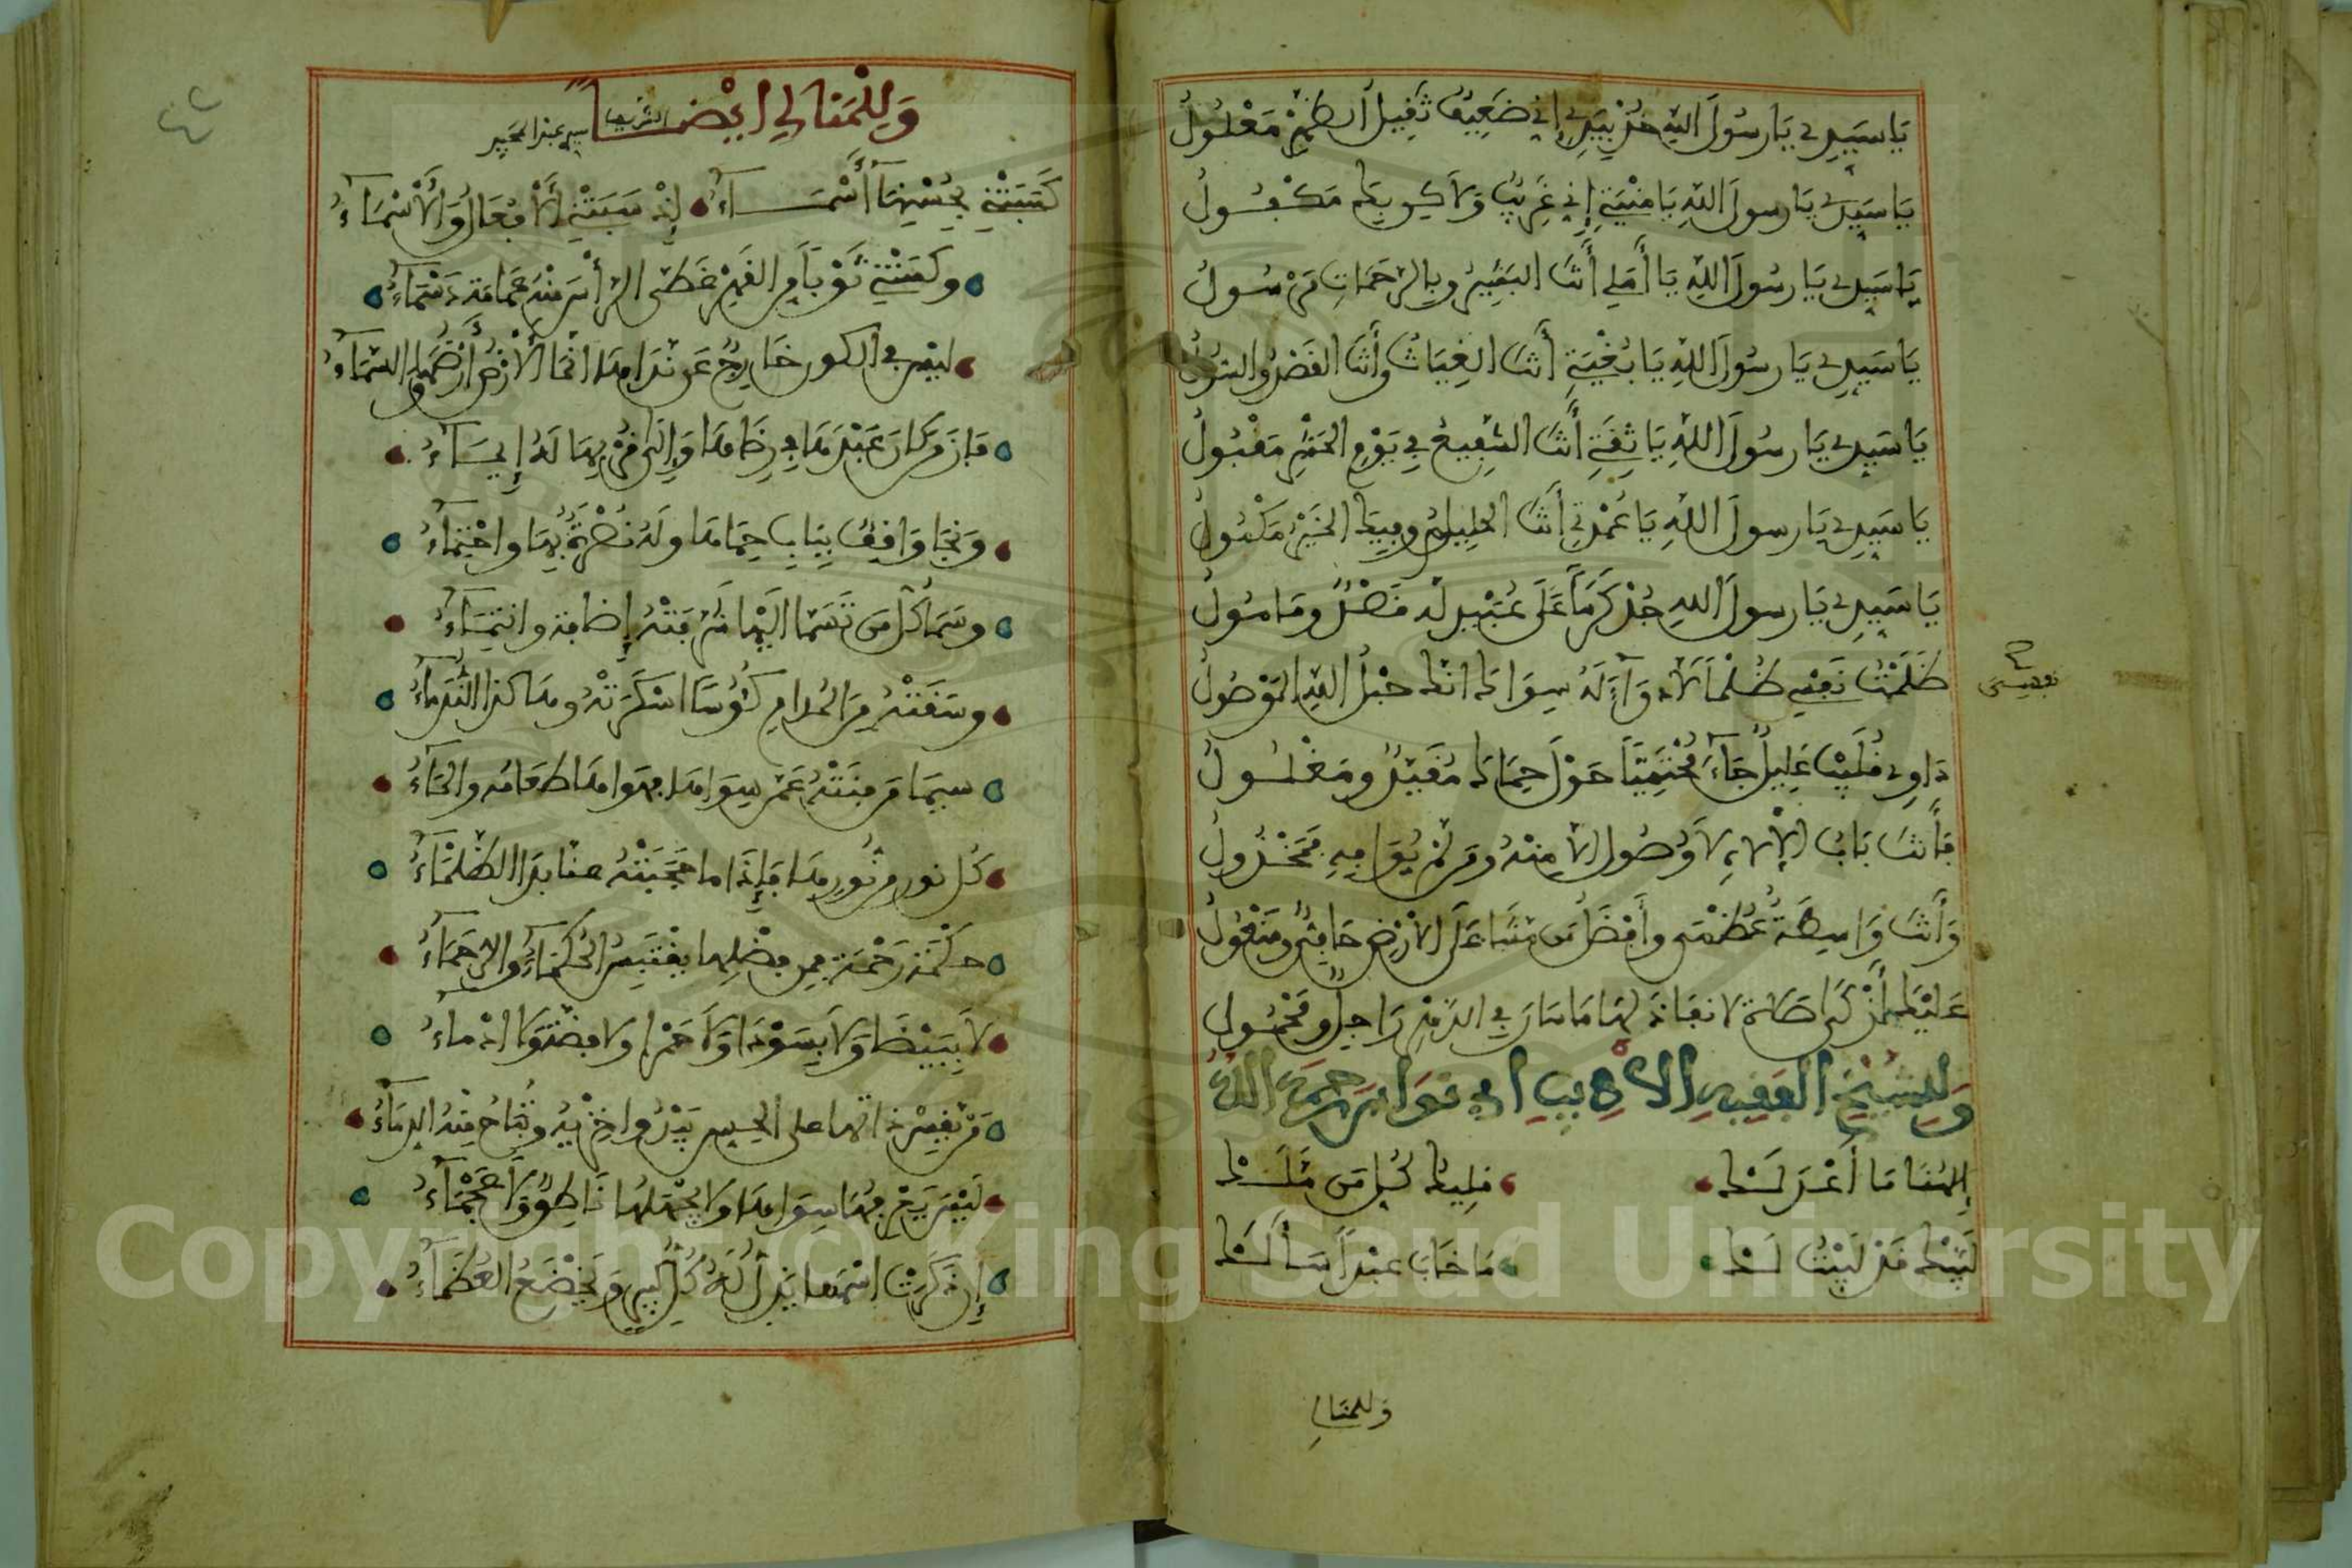 يَا سَيِّدِي يَا رسُولَ اللهِ خُذْ بِيَدِي إِنِّي ضَعِيفٌ ثَقِيلُ الظَّهْرِ مَغْلُولُ
يَا سَيِّدِي يَا رسولَ اللهِ يَا مُنْيَتِي إِنِّي غَرِيبٌ وَلَاكِنْ بِكَ مَكْفُولُ
يَا سَيِّدِي يَا رسُولَ اللهِ يَا أَمَلِي أَنْتَ البَشِيرُ وبِالرَّحَمَاتِ مَرْسُولُ
يَا سَيِّدِي يَا رسُولَ اللهِ يَا بُغْيَتِي أَنْتَ الغِيَاثُ وأَنْتَ القَصْدُ والسُّولُ
يَا سَيِّدِي يَا رسُولَ اللهِ يَا ثِقَتِي أَنْتَ الشَّفِيعُ فِي يَوْمِ الحَشْرِ مَقْبُولُ
يَا سَيِّدِي يَا رسولَ اللهِ يَا عُمْدَتِي أَنْتَ الخَلِيلُ وفِيكَ الخَيْرُ مَكْمُولُ
يَا سَيِّدِي يَا رسولَ اللهِ جُدْ كَرَمًا عَلَى عُبَيْدٍ لَه فَضْلٌ ومَامُولُ
ظَلَمْتُ نَفْسِي ظُلْمًا لَا دَوَاءَ لَهُ سِوَاكَ أنْتَ حَبْلُ اللهِ المَوْصُولُ
نفسي
دَاوِي قُلَيْبَ عَلِيلٍ جَاءَ مُحْتَمِيًا حَوْلَ حِمَاكَ مُقَيَّدٌ ومَغْلُولُ
فَأَنْتَ بَابُ الإلَهِ لَا وُصُولَ إلَّا مِنْهُ ومَن لَمْ يُوَافِهِ فَمَخْذُولُ
وَأَنْتَ وَاسِطَةٌ عُظْمَى وأَفْضَلُ مَن مَشَى عَلَى الأَرْضِ حَافٍ ومَنْعُولُ
عَلَيْكَ أَزْكَى صَلَاة لَا نَفَاذَ لَهَا مَا سَارَ فِي الدَّهْرِ رَاجِلٌ ومَحْمُولُ
وَلِلشَّيْخِ الفَقِيهِ الأدِيبِ أبي نوَاس رَحِمَهُ اللهُ
إِلَهَنَا مَا أَعْدَلَكْ مَلِيكَ كُلِّ مَن مَلَكْ
لَبَّيْكَ قَدْ لَبَّيْتُ لَكْ مَا خَابَ عَبْدٌ سَأَلَكْ
وللمنالي
٤٢
وَلِلْمَنَالِي أيْضًا
الشريف سيدي عبد المجيد
كَتَبَتْنِي بِحُسْنِهَا أَسْمَاءُ إِذْ سَبَتْنِي الأَفْعَالُ وَالأَسْمَاءُ
وكَسَتْنِي ثَوْبًا مِنَ الغَيْمِ غَطَّى الرَّأْسَ مِنْهُ عِمَامَة دَسْمَاءُ
لَيْسَ فِي الكون خَارِجٌ عَن نَدَاهَا إِنَّمَا الأَرْضُ أَرْضُهَا والسَّمَاءُ
فَازَ مَن كَانَ عَبْدَهَا فِي رِضَاهَا وَإلَى قُرْبِهَا لَهُ إِيسَاءُ
وَنَجَا وَاقِفٌ بِبَابِ حِمَاهَا ولَهُ نُصْرَةٌ بِهَا واحْتِمَاءُ
وسَمَا كُلُّ مَن تَسَمَّى إلَيْهَا شَرَّفَتْهُ إِضَافَة وانْتِمَاءُ
وسَقَتْهُ مِنَ المُدَامِ كُؤُسًا أسْكَرَتْهُ وهَاكَذَا النُّدَمَاءُ
سِيمَا مَن فَنَتْهُ عَن سِوَاهَا فهَوَاهَا طَعَامُه والمَاءُ
كُلُّ نورٍ مِن نُورِهَا فَإِذَا مَا حَجَبَتْهُ عَنَّا بَدَا الظَّلْمَاءُ
حِكْمَة رَحْمَة فمِن فضْلِهَا يقْتَبِسُ الحُكَمَاءُ والرُّحَمَاءُ
لَا بِبَيْضَا وَلَا بِسَوْدَا وَلَا حَمْرَا ولَا فِضَّة ولَا أدْمَاءُ
لَيْسَ يَدْرِيهَا سِوَاهَا ولَا يَجْهَلُهَا نَاطِقٌ ولَا عَجْمَاءُ
إِن ذُكِرَتْ اسْمُهَا يَذِلُّ لَهُ كُلُّ كَبِيرٍ وَيَخْضَعُ العُظَمَاءُ
Copyright © King Saud University